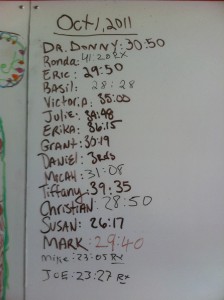 Oct 1, 2011
DR. DONNY: 30:50
Ronda: 41:20 RX
ERIC: 29:50
Basil: 28:28
Victoria: 35:00
Julie: 34:48
ERIKA: 36:15
GRANT: 35:19
DANIEL: 3 RDS
MICAH: 31:08
Tiffany: 39:35
CHRISTIAN: 28:50
SUSAN: 26:17
MARK: 29:40
MIKE: 23:05 RX
JOE: 23:27 Rx